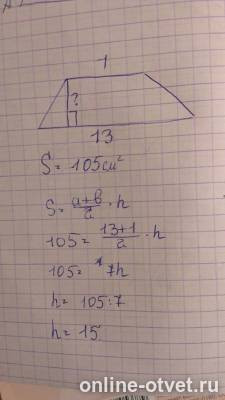 1
?
13
S = 105 см²
S = a+b/2 · h
105 = 13+1/2 · h
105 = 7h
h = 105:7
h = 15
online-otvet.ru